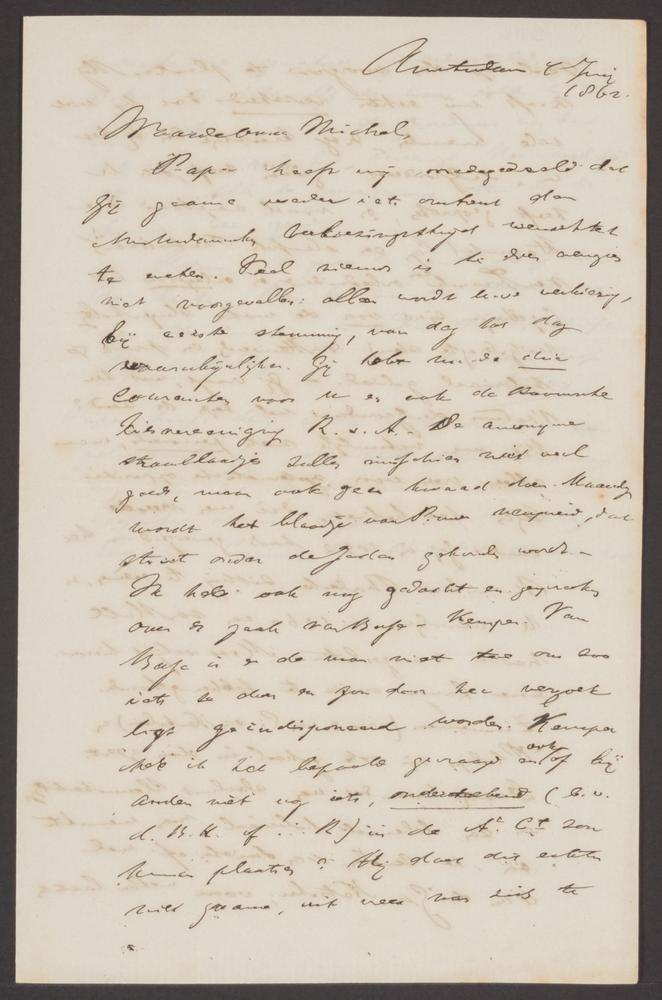 Amsterdam 6 Juny
1862.
Waarde Oom Michel,
Papa heeft mij medegedeeld dat
Gij gaarne weder iets omtrent den
Amsterdamsche verkiezingsstrijd wenschtet
te weten. Veel nieuws is in dien
niet voorgevallen: alleen wordt uwe verkiezing,
bij eerste stemming, van dag tot dag
waarschijnlijker. Gij hebt nu de drie
Couranten voor u en ook de Roomsche
Kiesvereeniging R. v. A. De anonyme
strooiblaadjes zullen misschien niet veel
goeds, maar ook geen kwaad doen. Maandag
wordt het blaadje van verspreid, dat
onder de Joden wordt.
Ik heb ook nog gedacht en gesproken
over de zaak van Bosse - Kemper. Van
Bosse is er de man niet toe om zoo
iets te doen en zou door het verzoek
ligt geïndisponeerd worden. Kemper
heb ik bepaald gevraagd en ook of hij
anders niet nog iets, onderteekend (b.v.
d. B. K. of : R) in de A. Ct. zou
kunnen plaatsen? Hij doet dit echter
niet gaarne, uit vrees van zich te